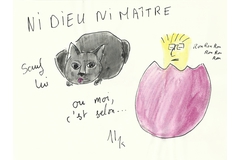 NI DIEU NI MAÎTRE
Sauf
lui
ou moi,
c'est selon...
Ron Ron Ron
Ron Ron
Ron